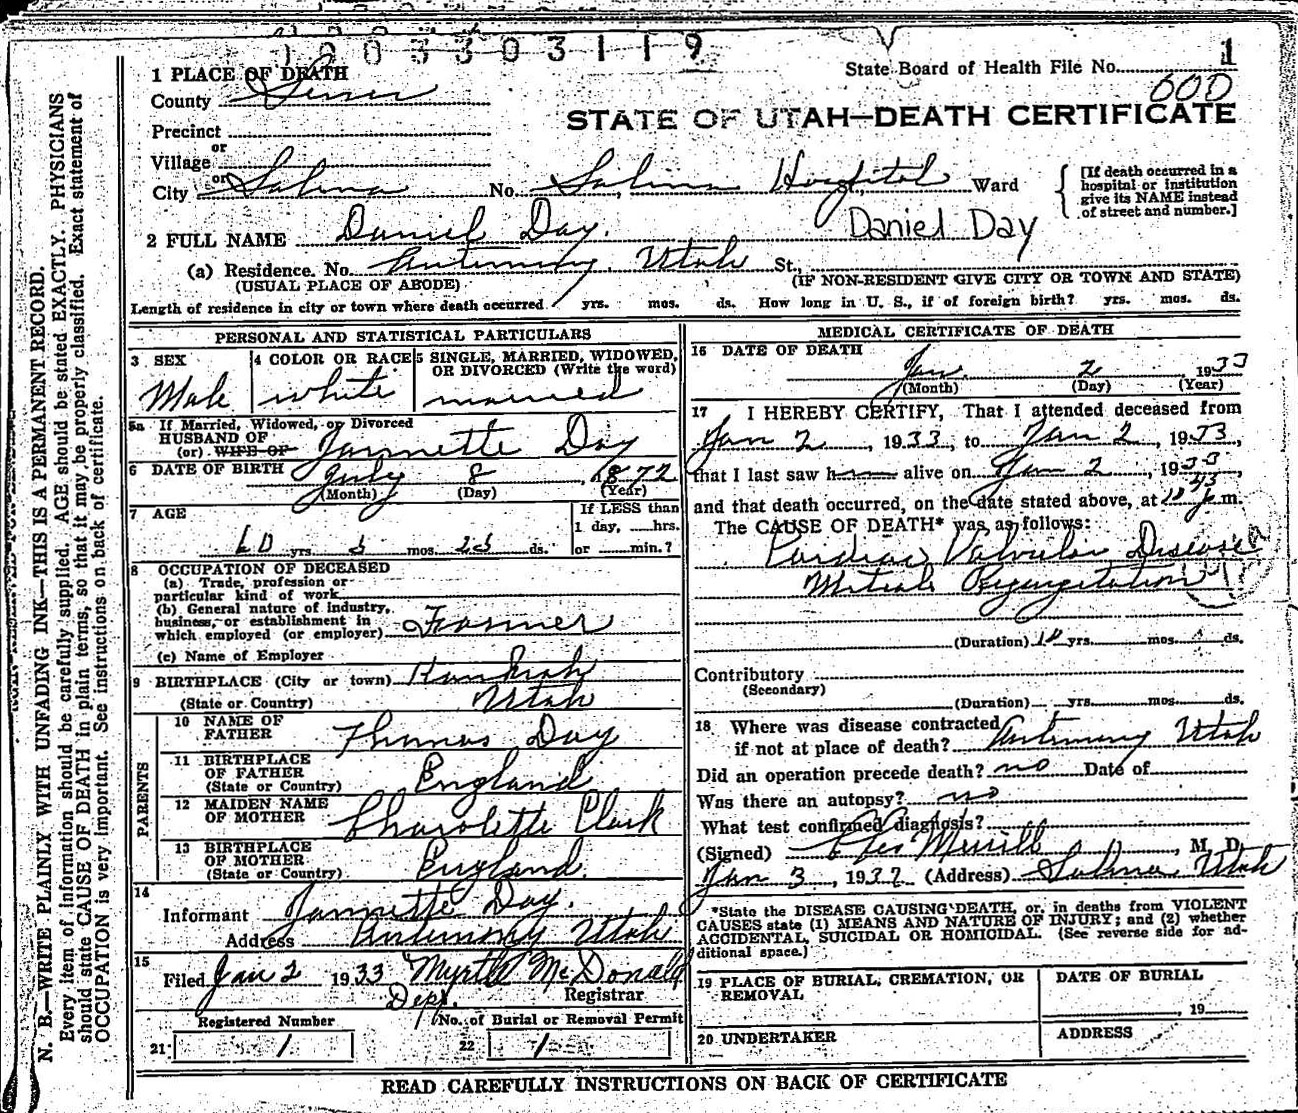 1 8 0 3 3 0 3 1 1 9
1
1 PLACE OF DEATH
State Board of Health File No.
County Sevier
600
STATE OF UTAH—DEATH CERTIFICATE
Precinct
or
Village
or
City Salina No. Salina Hospital St., Ward
[If death occurred in a
hospital or institution
give its NAME instead
of street and number.]
2 FULL NAME Daniel Day. Daniel Day
(a) Residence. No. Antimony, Utah St.,
(USUAL PLACE OF ABODE) (IF NON-RESIDENT GIVE CITY OR TOWN AND STATE)
Length of residence in city or town where death occurred yrs. mos. ds. How long in U. S., if of foreign birth? yrs. mos. ds.
PERSONAL AND STATISTICAL PARTICULARS
3 SEX
Male
4 COLOR OR RACE
white
5 SINGLE, MARRIED, WIDOWED,
OR DIVORCED (Write the word)
married
5a If Married, Widowed, or Divorced
HUSBAND OF
(or) WIFE OF Jannette Day
6 DATE OF BIRTH July 8, 1872
(Month) (Day) (Year)
7 AGE
60 yrs. 5 mos. 25 ds.
If LESS than
1 day, hrs.
or min.?
8 OCCUPATION OF DECEASED
(a) Trade, profession or
particular kind of work
(b) General nature of industry,
business, or establishment in
which employed (or employer) Farmer
(c) Name of Employer
9 BIRTHPLACE (City or town)
(State or Country) Utah
PARENTS
10 NAME OF
FATHER Thomas Day
11 BIRTHPLACE
OF FATHER
(State or Country) England
12 MAIDEN NAME
OF MOTHER Charolette Clark
13 BIRTHPLACE
OF MOTHER
(State or Country) England
14
Informant Jannette Day.
Address Antimony Utah
15
Filed Jan 2 1933 Myrtle McDonald
Dept. Registrar
Registered Number
21 1
No. of Burial or Removal Permit
22 1
MEDICAL CERTIFICATE OF DEATH
16 DATE OF DEATH
Jan. 2 1933
(Month) (Day) (Year)
17 I HEREBY CERTIFY, That I attended deceased from
Jan 2, 1933, to Jan 2, 1933,
that I last saw him alive on Jan 2, 1933,
and that death occurred, on the date stated above, at m.
The CAUSE OF DEATH* was as follows:
Cardiac Valvular Disease
Mitral Regurgitation
(Duration) 10 yrs. mos. ds.
Contributory
(Secondary)
(Duration) yrs. mos. ds.
18 Where was disease contracted
if not at place of death? Antimony Utah
Did an operation precede death? no Date of
Was there an autopsy? no
What test confirmed diagnosis?
(Signed) Merrill, M. D.
Jan 3, 193 (Address) Salina Utah
*State the DISEASE CAUSING DEATH, or, in deaths from VIOLENT
CAUSES state (1) MEANS AND NATURE OF INJURY; and (2) whether
ACCIDENTAL, SUICIDAL OR HOMICIDAL. (See reverse side for ad-
ditional space.)
19 PLACE OF BURIAL, CREMATION, OR
REMOVAL
DATE OF BURIAL
, 19
20 UNDERTAKER
ADDRESS
READ CAREFULLY INSTRUCTIONS ON BACK OF CERTIFICATE
N. B.—WRITE PLAINLY WITH UNFADING INK—THIS IS A PERMANENT RECORD.
Every item of information should be carefully supplied. AGE should be stated EXACTLY. PHYSICIANS
should state CAUSE OF DEATH in plain terms, so that it may be properly classified. Exact statement of
OCCUPATION is very important. See instructions on back of certificate.